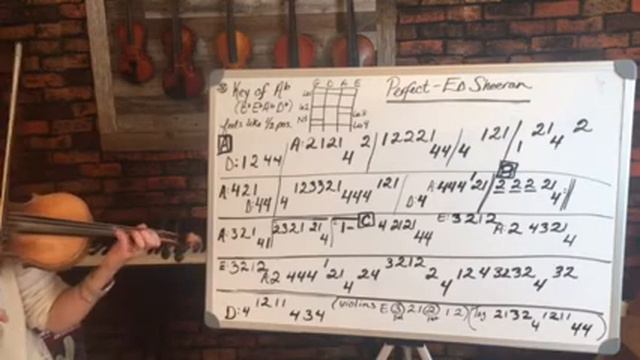 Key of Ab
G D A E
Perfect - Ed Sheeran
feels like ½ pos.
A
D: 1 2 4 4 A: 2 1 2 1 4 2 1 2 2 2 1 4 4 4 1 2 1 1 2 1 4 2
B
A: 4 2 1 D: 4 4 4 1 2 3 3 2 1 4 4 4 1 2 1 D: 4 A: 4 4 4 1 2 1 2 2 2 2 2 2 2 1 4
A: 3 2 1 4 1 2 3 2 1 2 1 4 1- C 4 2 1 2 1 4 4 E: 3 2 1 2 A: 2 4 3 2 1 4
E: 3 2 1 2 A: 2 4 4 4 1 2 1 4 2 4 3 2 1 2 2 4 1 2 4 3 2 3 2 4 3 2
D: 4 1 2 1 1 4 3 4 (violins E 3 2 1 2 1 2) 2 1 3 2 4 1 2 1 1 4 4